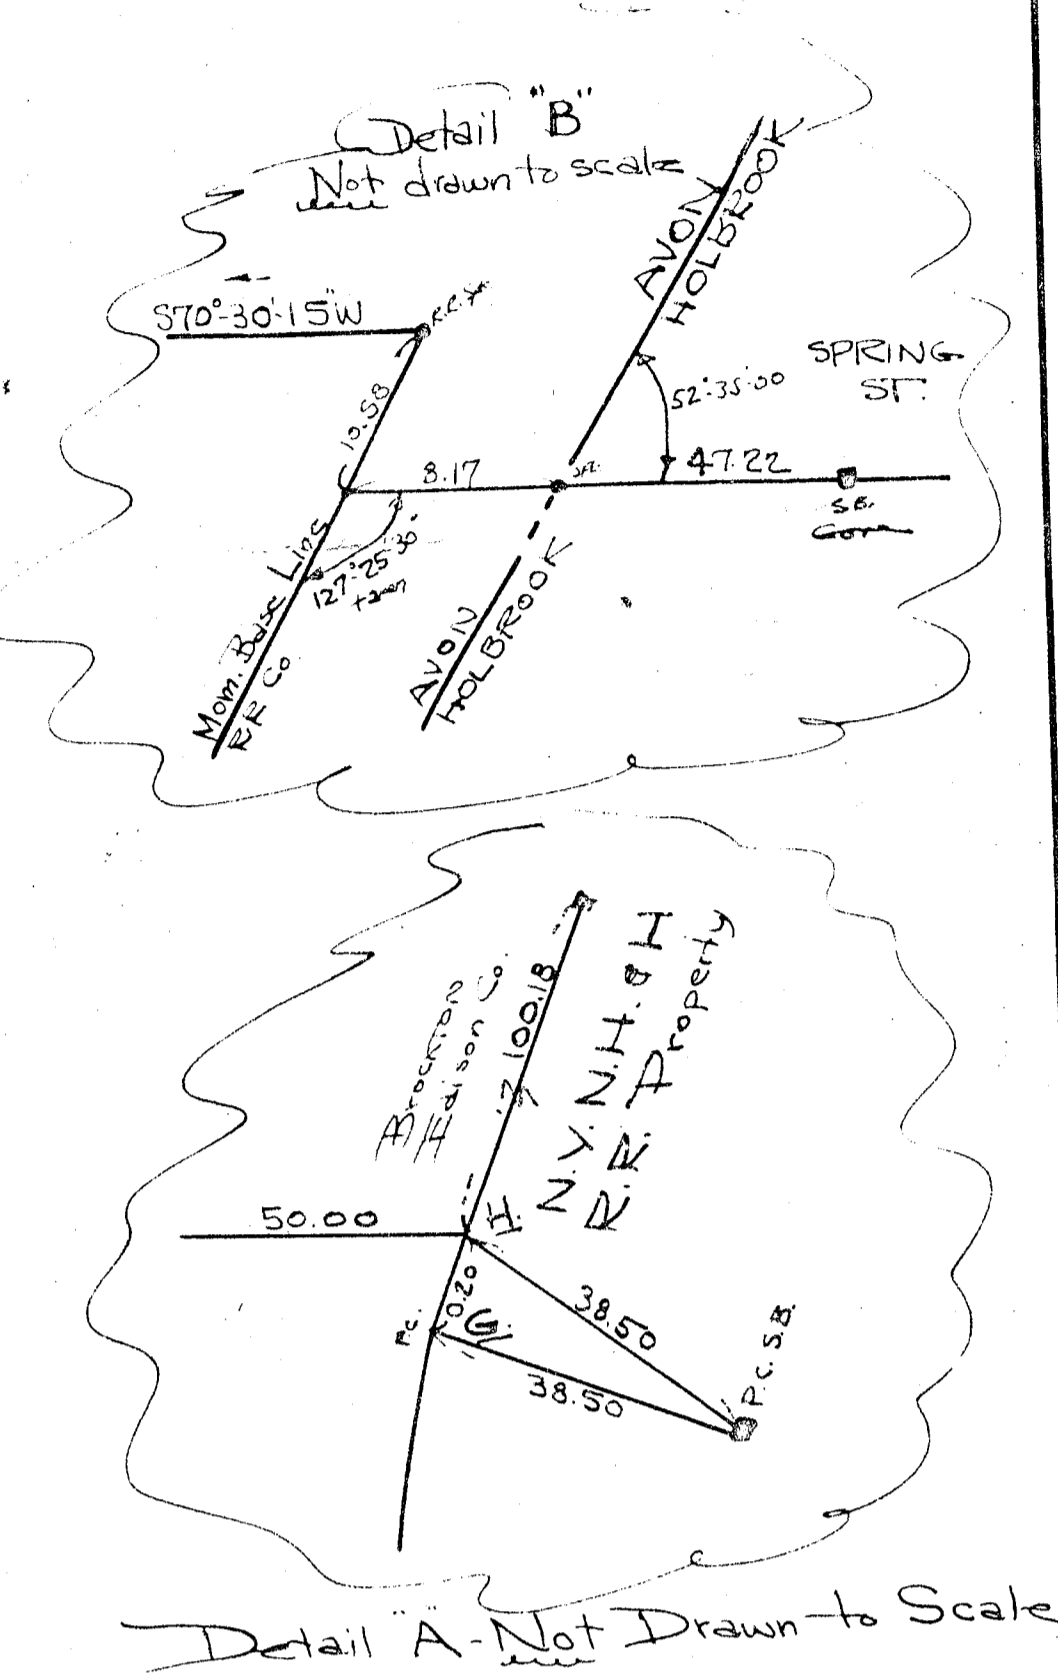 Detail "B"
Not drawn to scale
AVON
HOLBROOK
S70°-30'-15"W
SPRING
ST.
52°35'00
10.58
8.17
47.22
S.B.
127°25'30"
Mom. Base Line
RR Co
AVON
HOLBROOK
Brockton
Edison Co.
100.18
N.Y. N.H. & H
R.R. Property
50.00
H.
0.20
P.C.
G.
38.50
38.50
P.C. S.B.
Detail "A" - Not Drawn to Scale